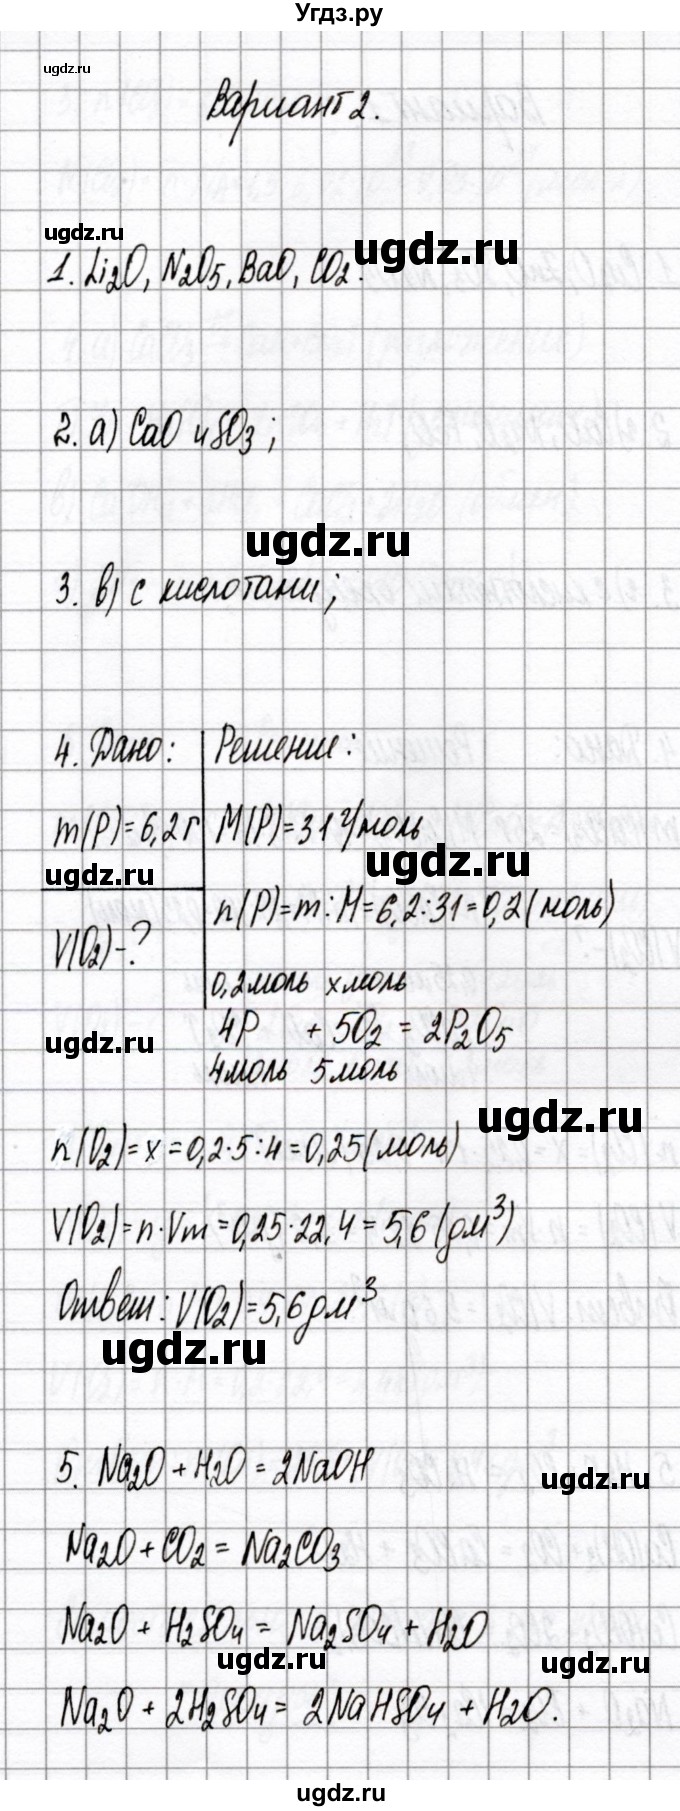 Угдз.ру
ugdz.ru
Вариант 2.
ugdz.ru
ugdz.ru
1. Li₂O, N₂O₅, BaO, CO₂.
2. а) CaO и SO₃;
ugdz.ru
3. в) с кислотами;
4. Дано: Решение:
m(P)=6,2г M(P)=31 г/моль
ugdz.ru
ugdz.ru
n(P)=m:M=6,2:31=0,2(моль)
V(O₂)-?
0,2моль xмоль
4P + 5O₂ = 2P₂O₅
ugdz.ru
4моль 5моль
ugdz.ru
n(O₂)=x=0,2·5:4=0,25(моль)
V(O₂)=n·Vm=0,25·22,4=5,6(дм³)
Ответ: V(O₂)=5,6дм³
ugdz.ru
5. Na₂O+H₂O=2NaOH
ugdz.ru
Na₂O+CO₂=Na₂CO₃
Na₂O+H₂SO₄=Na₂SO₄+H₂O
ugdz.ru
ugdz.ru
Na₂O+2H₂SO₄=2NaHSO₄+H₂O.
ugdz.ru